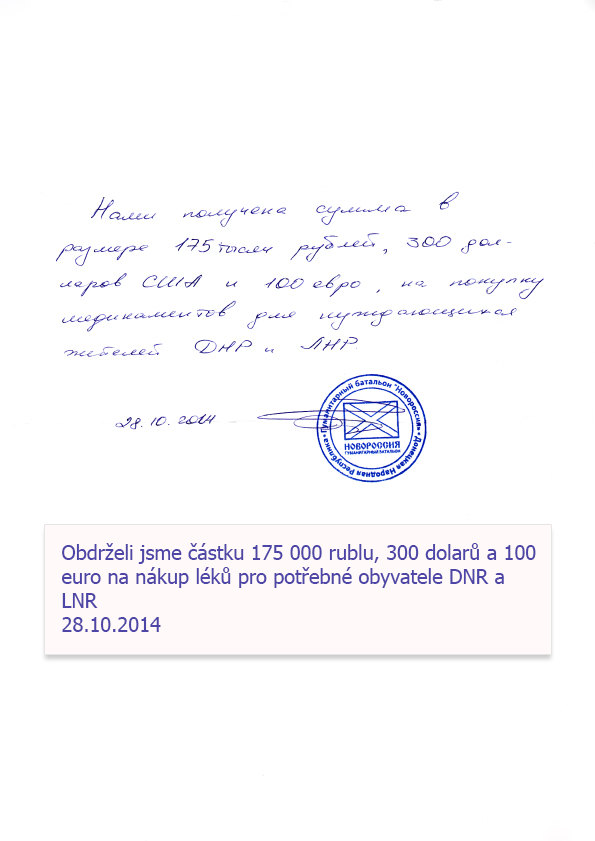 Нами получена сумма в
размере 175 тысяч рублей, 300 дол-
ларов США и 100 евро, на покупку
медикаментов для нуждающихся
жителей ДНР и ЛНР.
28.10.2014
Гуманитарный батальон "Новороссия" • Донецкая Народная Республика •
НОВОРОССИЯ
ГУМАНИТАРНЫЙ БАТАЛЬОН
Obdrželi jsme částku 175 000 rublu, 300 dolarů a 100
euro na nákup léků pro potřebné obyvatele DNR a
LNR
28.10.2014